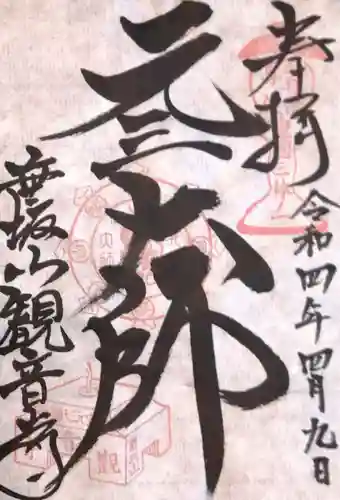 奉拝
令和四年四月九日
元三大師
無坂山観音寺